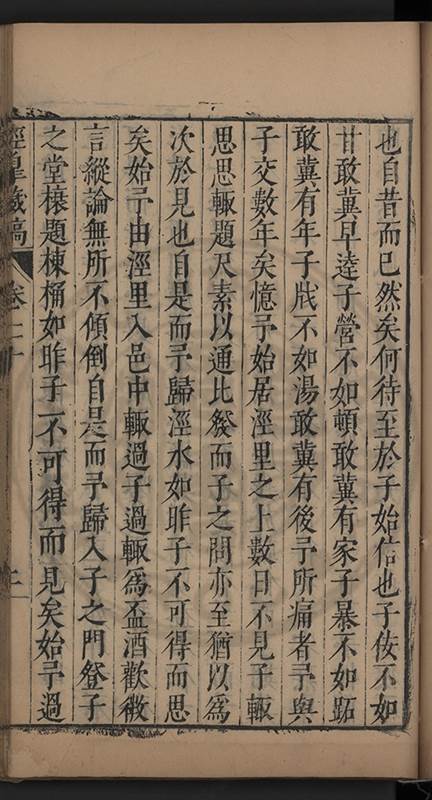 也自昔而已然矣何待至於子始信也子佞不如
甘敢冀早逵子營不如頓敢冀有家子暴不如跖
敢冀有年子戕不如湯敢冀有後予所痛者予與
子交數年矣憶予始居涇里之上數日不見子輙
思思輙題尺素以通比發而子之問亦至猶以爲
次於見也自是而予歸涇水如昨子不可得而思
矣始予由涇里入邑中輙過子過輙爲盃酒歡微
言縱論無所不傾倒自是而予歸入子之門登子
之堂榱題棟桷如昨子不可得而見矣始予過
涇臯藏稿 卷二十 二